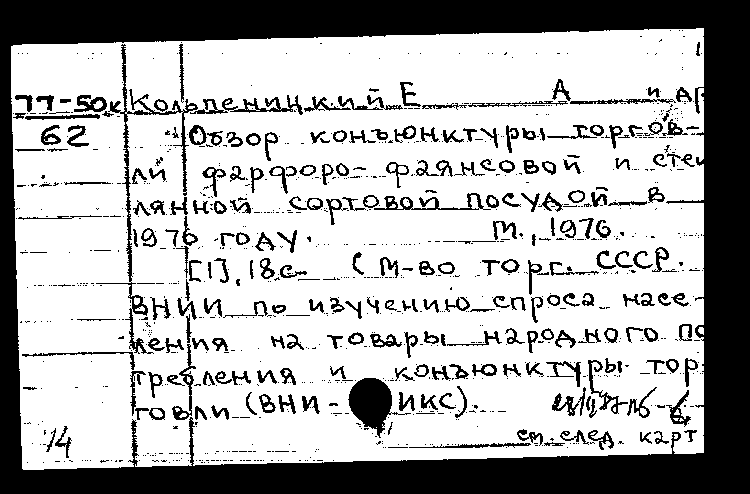 77-50к Кольпеницкий Е А и др
62 Обзор конъюнктуры торгов-
ли фарфоро-фаянсовой и стек
лянной сортовой посудой в
1976 году. М., 1976.
[1], 18с. (М-во торг. СССР.
ВНИИ по изучению спроса насе-
ления на товары народного по
требления и конъюнктуры тор
говли (ВНИ-ИКС).
14 см. след. карт